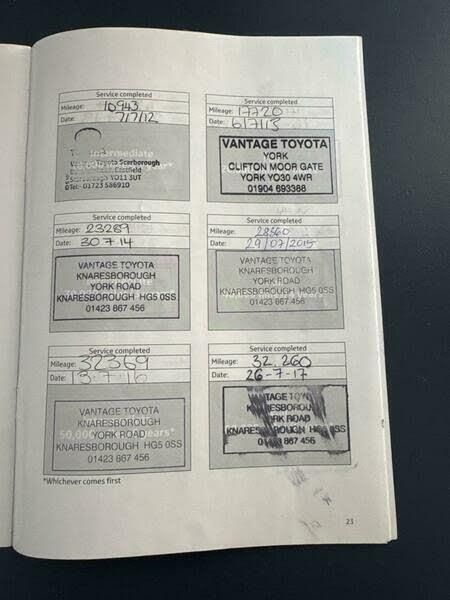 Service completed
Mileage: 10943
Date: 7/7/12
Intermediate
Toyota Scarborough
Eastfield
Scarborough YO11 3UT
Tel: 01723 586910
Service completed
Mileage: 17720
Date: 6/7/13
VANTAGE TOYOTA
YORK
CLIFTON MOOR GATE
YORK YO30 4WR
01904 693388
Service completed
Mileage: 23289
Date: 30.7.14
VANTAGE TOYOTA
KNARESBOROUGH
YORK ROAD
KNARESBOROUGH HG5 0SS
01423 867 456
Service completed
Mileage: 28560
Date: 29/07/2015
VANTAGE TOYOTA
KNARESBOROUGH
YORK ROAD
KNARESBOROUGH HG5 0SS
01423 867 456
Service completed
Mileage: 32369
Date: 13.7.16
VANTAGE TOYOTA
KNARESBOROUGH
YORK ROAD
KNARESBOROUGH HG5 0SS
01423 867 456
Service completed
Mileage: 32.260
Date: 26-7-17
TAGE TOYO
ROAD
867 456
*Whichever comes first
23